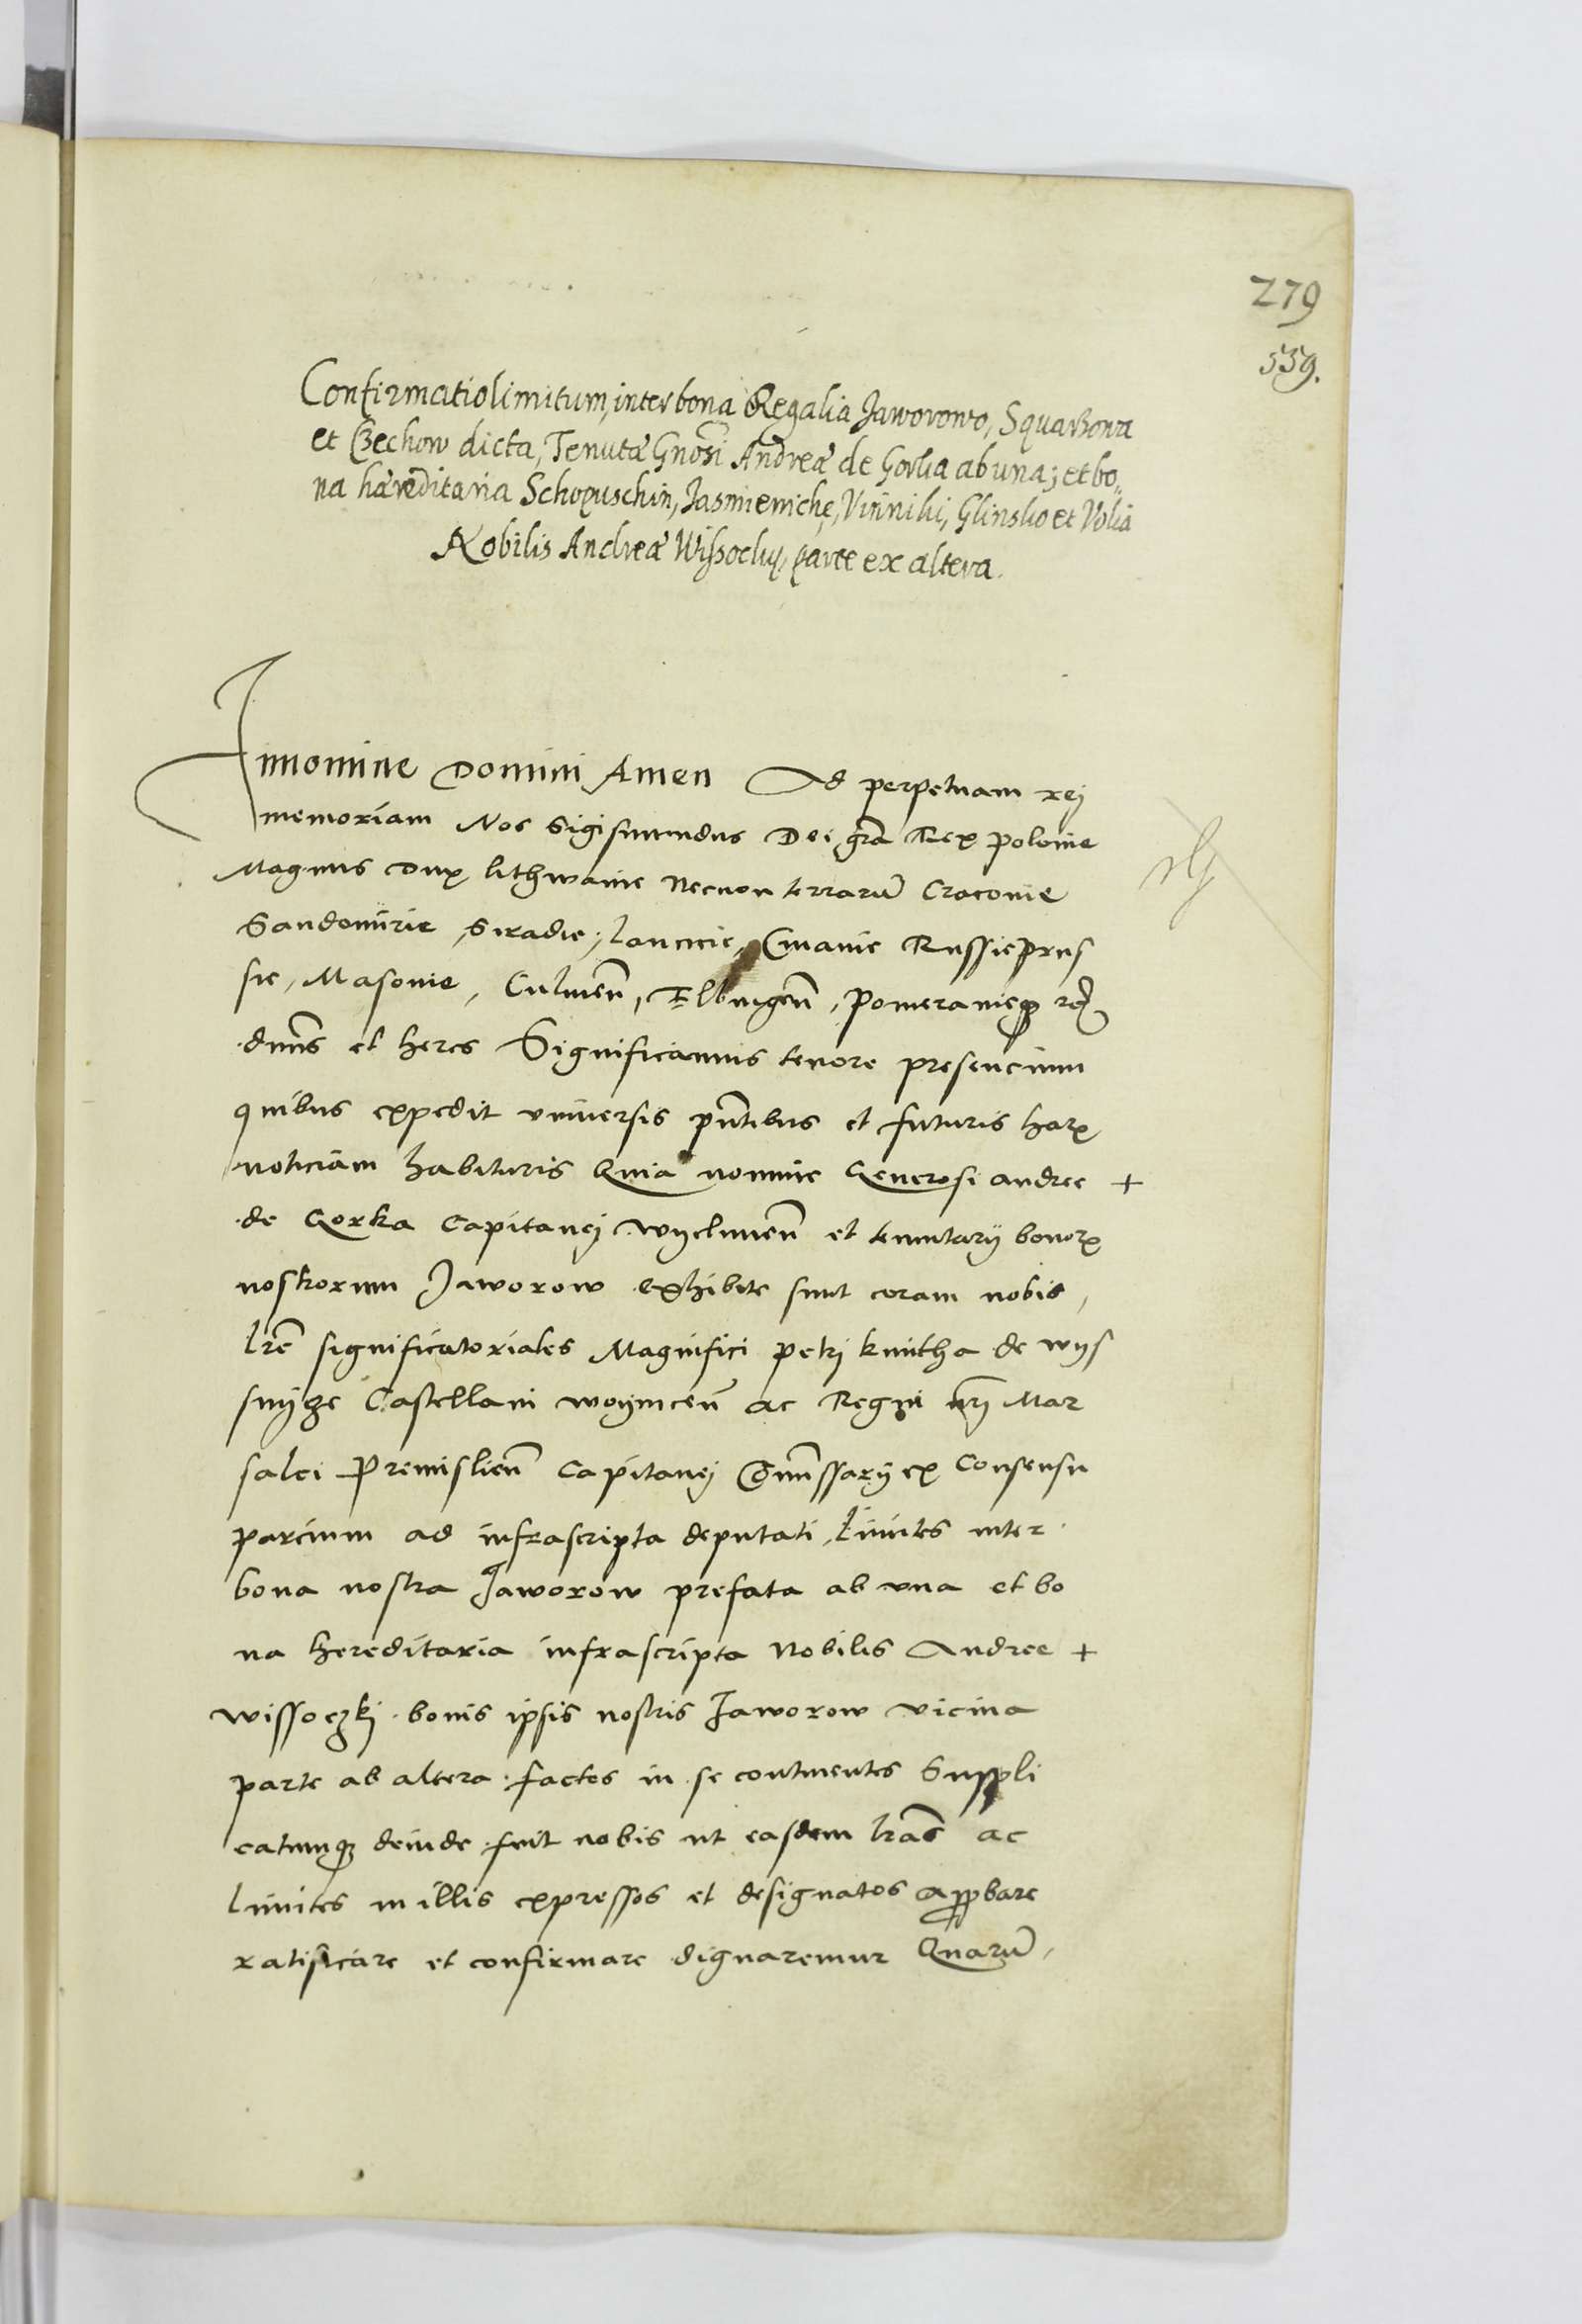 279
559.
Confirmatio limitum, inter bona Regalia Jaworowo, Squarzowa
et Czechow dicta, Tenutæ Gnosi Andreæ de Gorka ab una; et bo„
na hæreditaria Schopuschin, Jasnieniche, Vinniki, Glinsko et Volia
Nobilis Andreæ Wissocky, parte ex altera.
In nomine Domini Amen Ad perpetuam rej
memoriam Nos Sigismundus Dei gra Rex Polonie
Magnus Dux Lithwanie Necnon terraru Cracovie
Sandomirie, Siradie, Lancicie, Cuiavie Russie Prus
sie, Masovie, Culmen, Elbingen, Pomeranieq
dnus et heres Significamus tenore presencium
quibus expedit universis pntibus et futuris har
noticiam habituris Quia nomine Generosi andree +
de Gorka Capitanej wyelunen et tenutarij bonor
nostrorum Jaworow exhibite sunt coram nobis,
lre significatoriales Magnifici Petrj kmitha de wys
snijcze Castellani woynicen ac Regni nri Mar
salci Premislien Capitanej Comissarij ex Consensu
parcium ad infrascripta deputati, limites inter
bona nostra Jaworow prefata ab una et bo
na hereditaria infrascripta Nobilis Andree +
wissoczkj bonis ipsis nostris Jaworow vicina
parte ab altera factos in se continentes Suppli
catumq deinde fuit nobis ut easdem lras ac
limites in illis expressos et designatos approbare
ratificare et confirmare dignaremur Quaru,